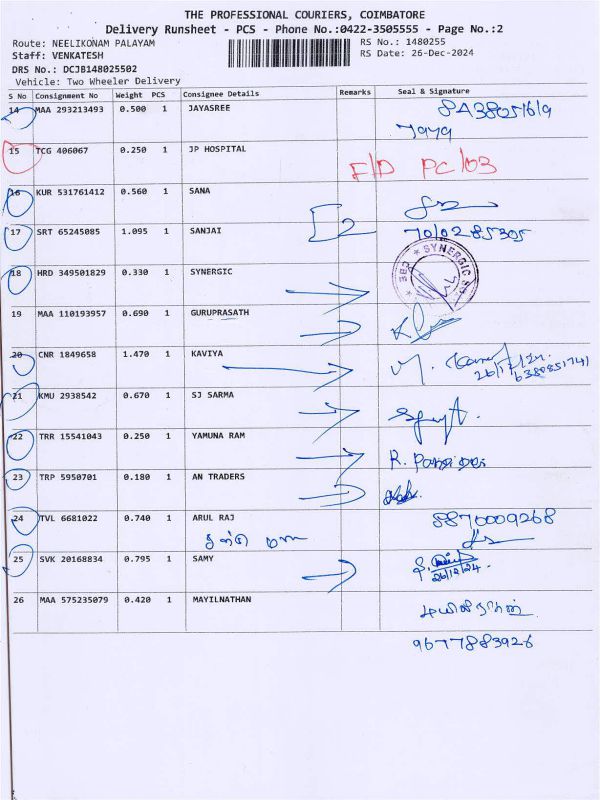 THE PROFESSIONAL COURIERS, COIMBATORE
Delivery Runsheet - PCS - Phone No.:0422-3505555 - Page No.:2
Route: NEELIKONAM PALAYAM RS No.: 1480255
Staff: VENKATESH RS Date: 26-Dec-2024
DRS No.: DCJB148025502
Vehicle: Two Wheeler Delivery
S No Consignment No Weight PCS Consignee Details Remarks Seal & Signature
14 MAA 293213493 0.500 1 JAYASREE
15 TCG 406067 0.250 1 JP HOSPITAL
F/D PC/03
16 KUR 531761412 0.560 1 SANA
17 SRT 65245085 1.095 1 SANJAI
18 HRD 349501829 0.330 1 SYNERGIC
SYNERGIC
CBE
19 MAA 110193957 0.690 1 GURUPRASATH
20 CNR 1849658 1.470 1 KAVIYA
26/12/24
6380851741
21 KMU 2938542 0.670 1 SJ SARMA
22 TRR 15541043 0.250 1 YAMUNA RAM
23 TRP 5950701 0.180 1 AN TRADERS
24 TVL 6681022 0.740 1 ARUL RAJ 8870009268
25 SVK 20168834 0.795 1 SAMY
26/12/24.
26 MAA 575235079 0.420 1 MAYILNATHAN
9677883926